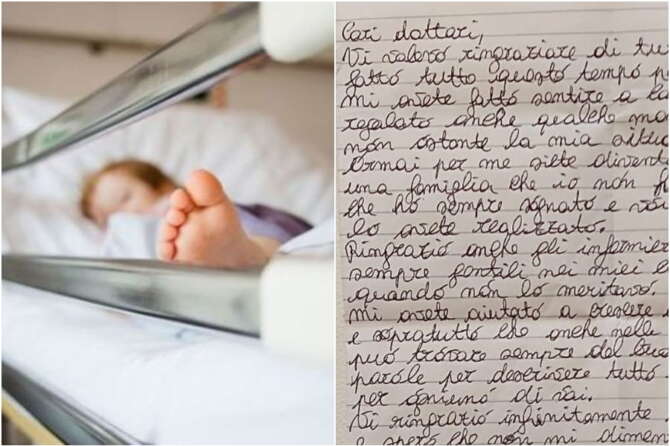 Cari dottori,
Vi volevo ringraziare di tu
fatto tutto questo tempo p
mi avete fatto sentire a ca
regalato anche qualche mo
non ostante la mia situ
Ormai per me siete divent
una famiglia che io non
che ho sempre sognato e voi
lo avete realizzato.
Ringrazio anche gli infermier
sempre gentili nei miei
quando non lo meritavo.
mi avete aiutato a credere
e sopratutto che anche nelle
può trovare sempre del buo
parole per descrivere tutto
per ogniuno di voi.
Vi ringrazio infinitamente
e spero che non mi dimen